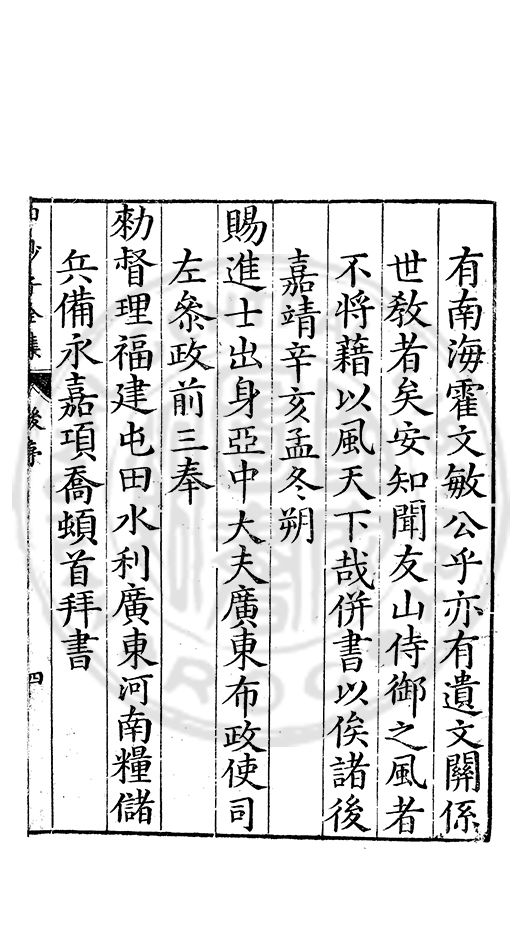 有南海霍文敏公乎亦有遺文關係
世敎者矣安知聞友山侍御之風者
不將藉以風天下哉併書以俟諸後
嘉靖辛亥孟冬朔
賜進士出身亞中大夫廣東布政使司
左叅政前三奉
勑督理福建屯田水利廣東河南糧儲
兵備永嘉項喬頓首拜書
全集
後序
四